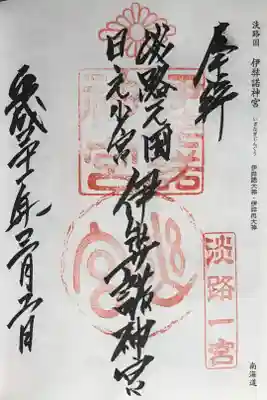 淡路国 伊弉諾神宮 いざなぎじんぐう 伊弉諾大神・伊弉冉大神
南海道
奉拝
淡路一宮
淡路之国
日之少宮 伊弉諾神宮
平成 年 月 日